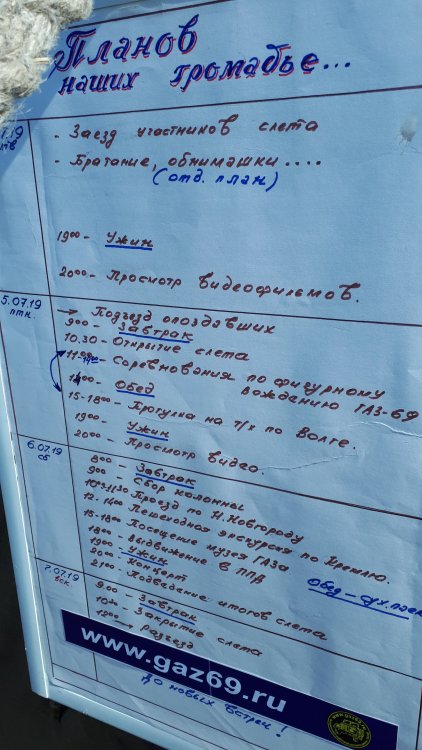 Планов
наших громадьё...
- Заезд участников слета
- Братание, обнимашки....
(отд. план)
19⁰⁰ - Ужин
20⁰⁰ - Просмотр видеофильмов.
5.07.19
птн.
→ Подъезд опоздавших
9⁰⁰ - Завтрак
10.30 - Открытие слета
Соревнования по фигурному
вождению ГАЗ-69
Обед
15-18⁰⁰ - Прогулка на т/х по Волге.
19⁰⁰ - Ужин
20⁰⁰ - Просмотр видео.
6.07.19
сб
8⁰⁰ - Завтрак
9⁰⁰ - Сбор колонны
Проезд по Н.Новгороду
12-14⁰⁰ Пешеходная экскурсия по Кремлю.
15-18⁰⁰ Посещение музея ГАЗа
18⁰⁰ - Выдвижение в ППД
Обед - сух.паек
19⁰⁰ - Ужин
20⁰⁰ - Концерт
21⁰⁰ - Подведение итогов слета
7.07.19
вск.
9⁰⁰ - Завтрак
10⁰⁰ - Закрытие слета
12⁰⁰ → Разъезд
www.gaz69.ru
До новых встреч!